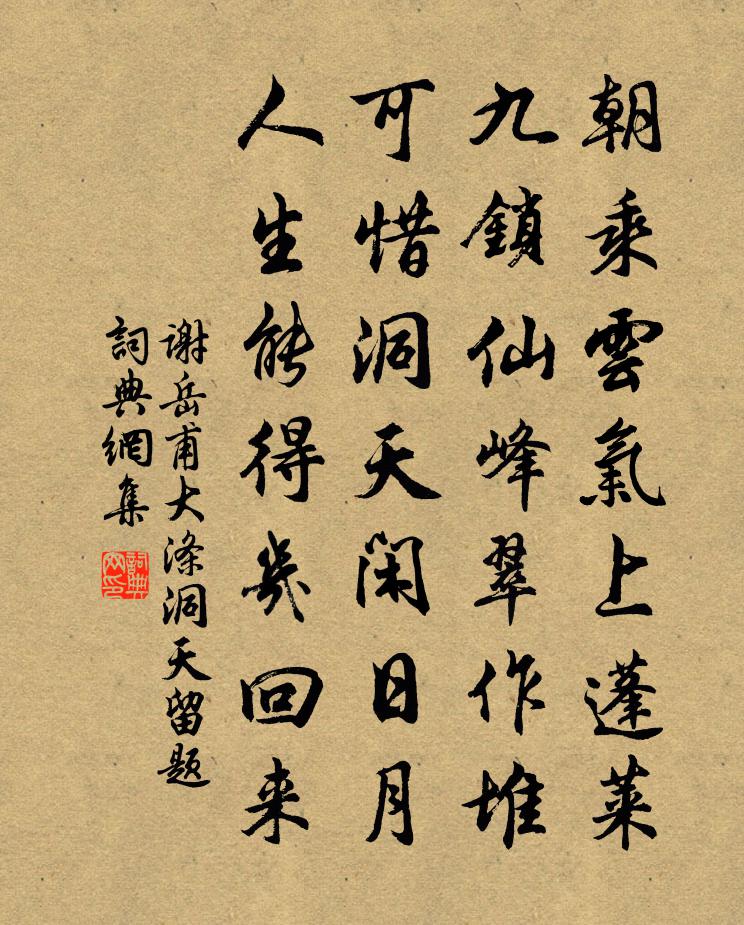 朝乘雲氣上蓬萊
九鎖仙峰翠作堆
可惜洞天閑日月
人生能得幾回来
谢岳甫大滌洞天留题
詞典網集
詞典網印